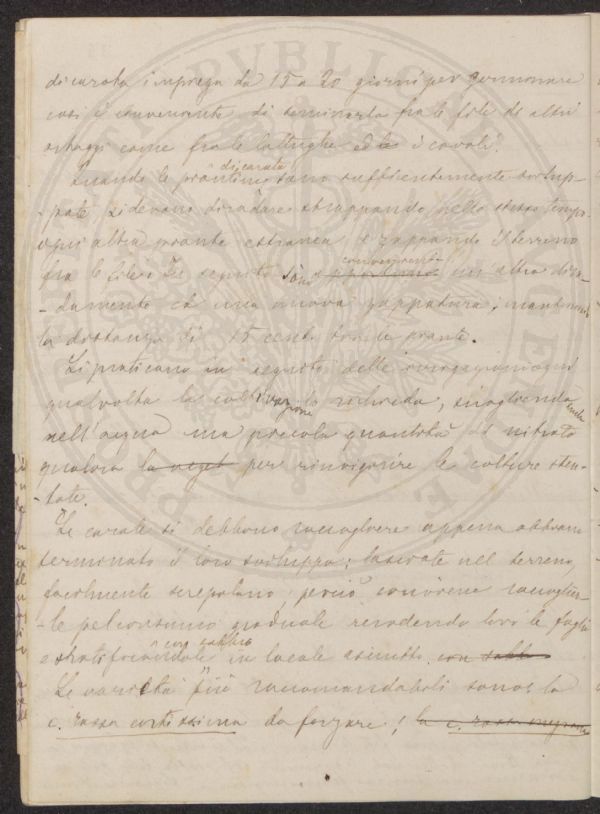 di carota impiega da 15 a 20 giorni per germinare
così è conveniente di seminarla fra le file di altri
ortaggi come fra le lattughe ed i cavoli.
Quando le piantine di carota sono sufficientemente svilup-
-pate si devono diradare strappando nello stesso tempo
ogni altra pianta estranea e zappando il terreno
fra le file. In seguito sono convenienti un'altro dira-
-damento ed una nuova zappatura; mantenendo
la distanza di 15 cent. fra le piante.
Si praticano in seguito delle inergazioni
qualvolta la coltivazione lo richieda, sciogliendo anche
nell'acqua una piccola quantità di nitrato
qualora la veget per rinvigorire le colture sten-
-tate.
Le carote si debbono raccogliere appena abbiano
terminato il loro sviluppo; lasciate nel terreno,
facilmente screpolano, perciò conviene raccoglier-
-le pel consumo graduale recidendo loro le foglie
e stratificandole con sabbia in locale asciutto con sabb
Le varietà più raccomandabili sono: la
c. rossa cortissima da forzare; la c. rossa
PVBLICI